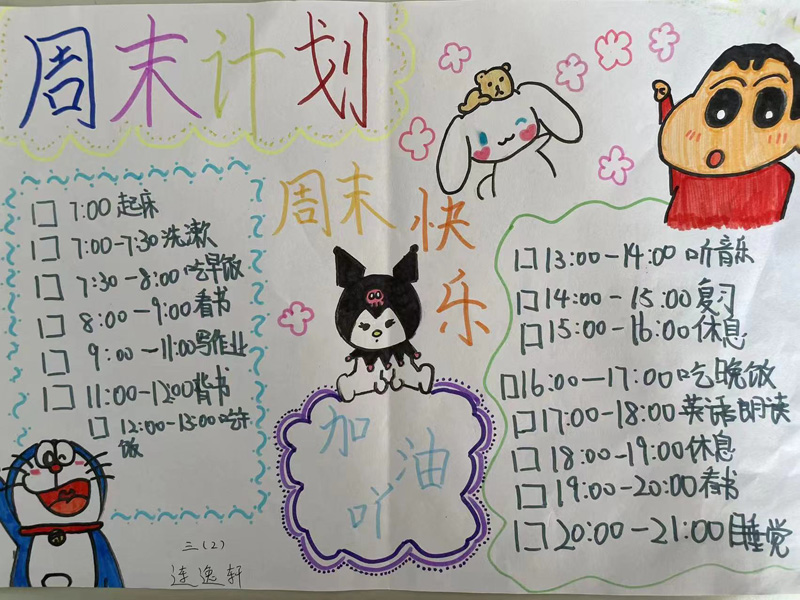 周末计划
7:00 起床
7:00-7:30 洗漱
7:30-8:00 吃早饭
8:00-9:00 看书
9:00-11:00 写作业
11:00-1200 背书
12:00-13:00 吃午
饭
三(2)
连逸轩
周末快
乐
加
油
吖
13:00-14:00 听音乐
14:00-15:00 复习
15:00-16:00 休息
16:00-17:00 吃晚饭
17:00-18:00 英语朗读
18:00-19:00 休息
19:00-20:00 看书
20:00-21:00 睡觉